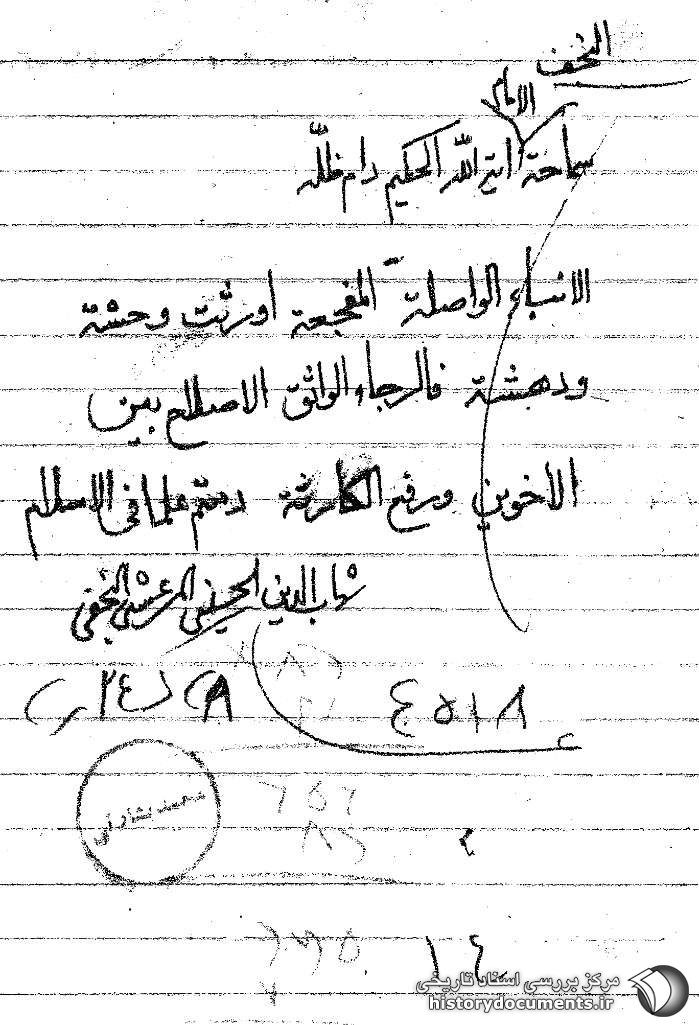 النجف
الامام
سماحة اية الله الحكيم دام ظله
الانباء الواصلة المفجعة اورثت وحشة
ودهشة فالرجاء الواثق الاصلاح بين
الأخوين ورفع الكارثة دمتم علما في الاسلام
شهاب الدين الحسيني المرعشي النجفي
مركز بررسی اسناد تاریخی
historydocuments.ir